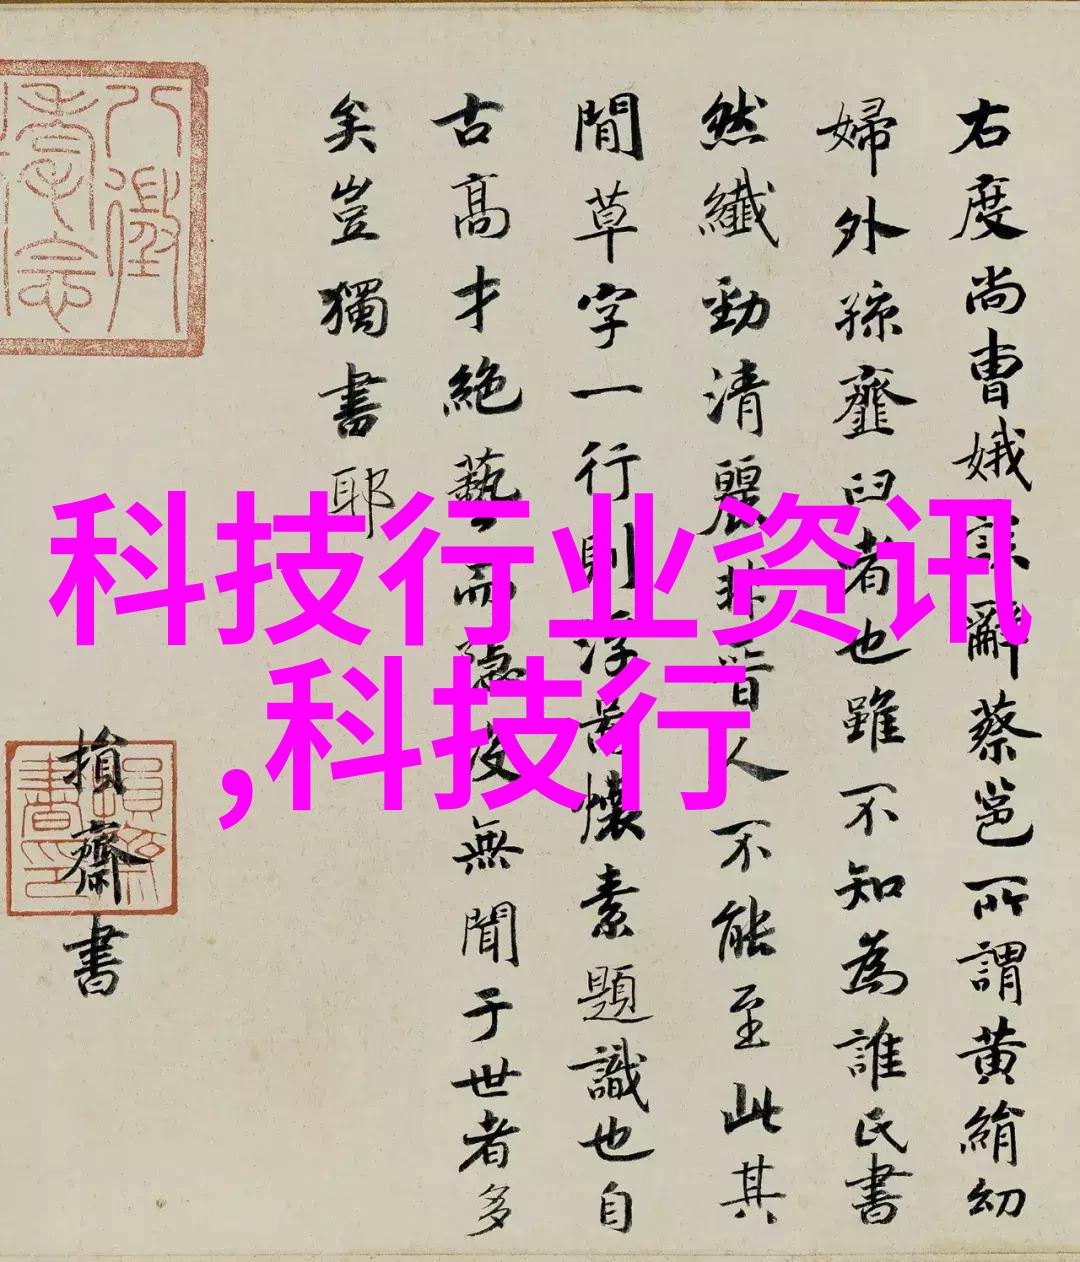 科技行业资讯
,科技行
右度尚曹娥誄辭蔡邕所謂黄絹幼
婦外孫虀臼者也雖不知為誰氏書
然纖勁清麗非晉人不能至此其
閒草字一行則浮懷素題識也自
古高才絕藝而無聞于世者多
矣豈獨書耶
損齋書